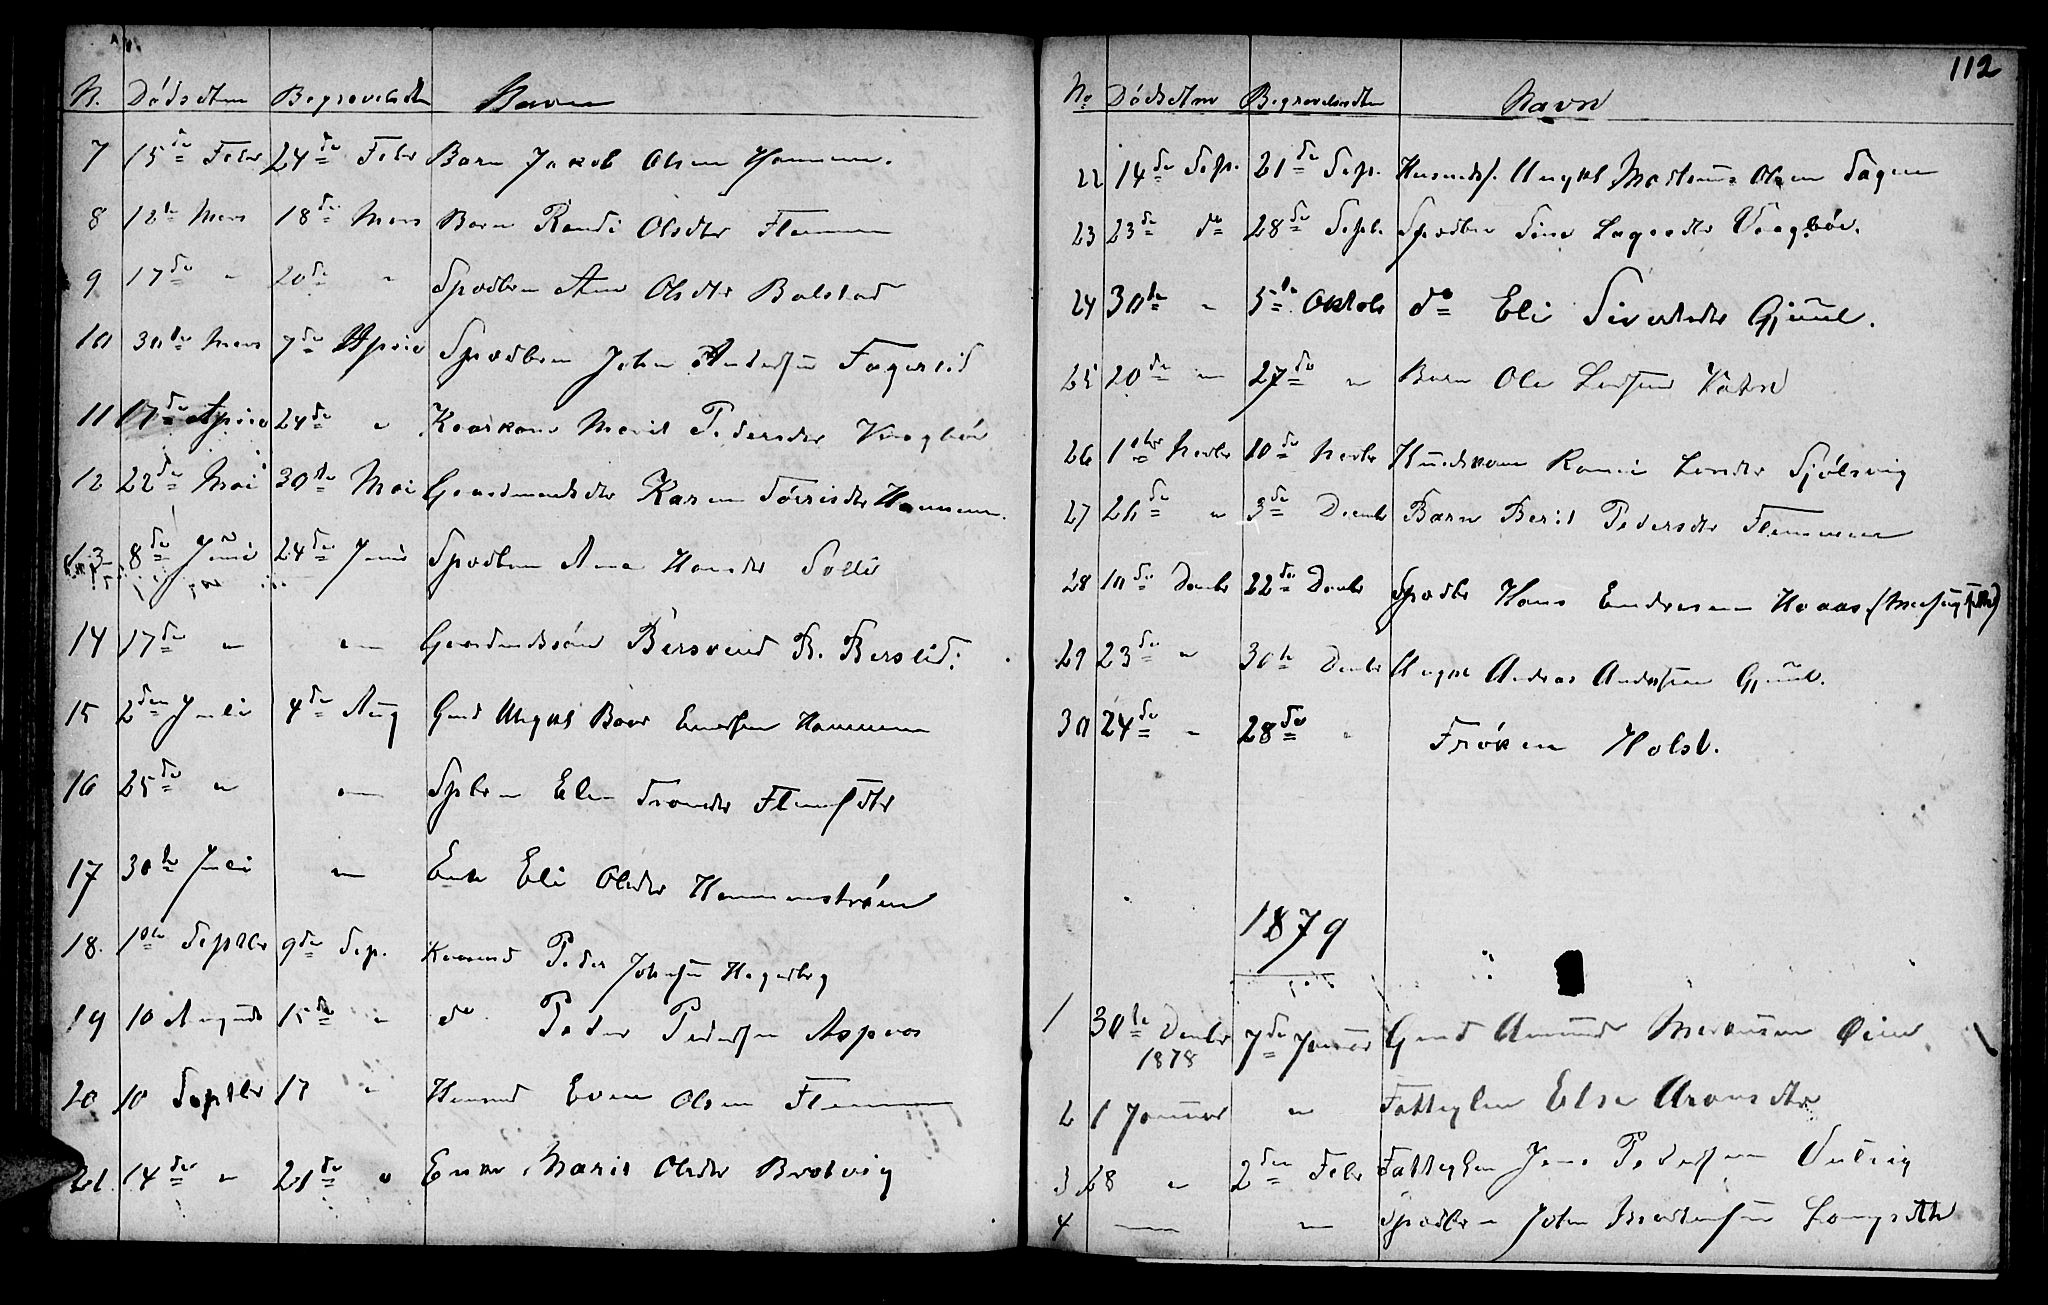 N. Dødsdtm Begravelsdtm Navn
7 15de Febr 24de Febr Barn Jakob Olsen Hammen.
8 12te Mars 18de Mars Barn Randi Olsdtr Flemmen
9 17de " 20de " Spædbrn Ane Olsdtr Balstad
10 30te Mars 7de April Spædbrn John Andersen Fagerlid
11 17de April 24de " Kaarkone Marit Pedersdtr Vaagbøe
12 22de Mai 30te Mai Gaardmandsdtr Karen Tørrisdtr Hammen.
13 8de Juni 24de Juni Spædbrn Ane Hansdtr Solli
14 17de " " Gaardmdssøn Bersvend B. Berslid.
15 2den Juli 4de Aug Gmd Ungkl Baar Einersen Hammen
16 25de " " Spbrn Elen Trondtr
17 30te Juli " Enke Eli Olsdtr Hammenstrøm
18. 1ste Septbr 9de Sep. Kaarmd Peder Johnsen Hagaberg
19 10 August 15de " do Peder Pedersen Aspaas
20 10 Septbr 17 " Husmd Even Olsen Flemmen
21. 14de " 21de " Enke Marit Olsdtr Bredvig
112
No Dødsdtm Begravelsesdtm Navn
22 14de Sep. 21de Sep. Ungkl Mortinus Olsen
23 23de do 28de Septr. Spædbrn Laresdtr Vaagbøe.
24 30te " 5te Oktobr do Eli Sivertsdtr Gjuul.
25 20de " 27de " Barn Ole Larsen
26 1ste Novbr 10de Novbr Larsdtr Sjølsvig
27 26de " 3de Decmbr Barn Berit Pedersdtr Flemmen
28 10de Decmbr 22de Decmbr Spædbr Hans Endresen Hoaas
29 23de " 30te Decmbr Ungkl Andreas Andersen Gjuul.
30 24de " 28de " Frøken Holst.
1879
1 30te Decmbr 1878 7de Januar Gmd Amund Markusen Øien
2 1 Januar " Fattiglem Else Aronsdtr
3 28 " 2den Febr Fattiglem Jens Pedersen
4 — " Spædbrn John Mortensen Langseth